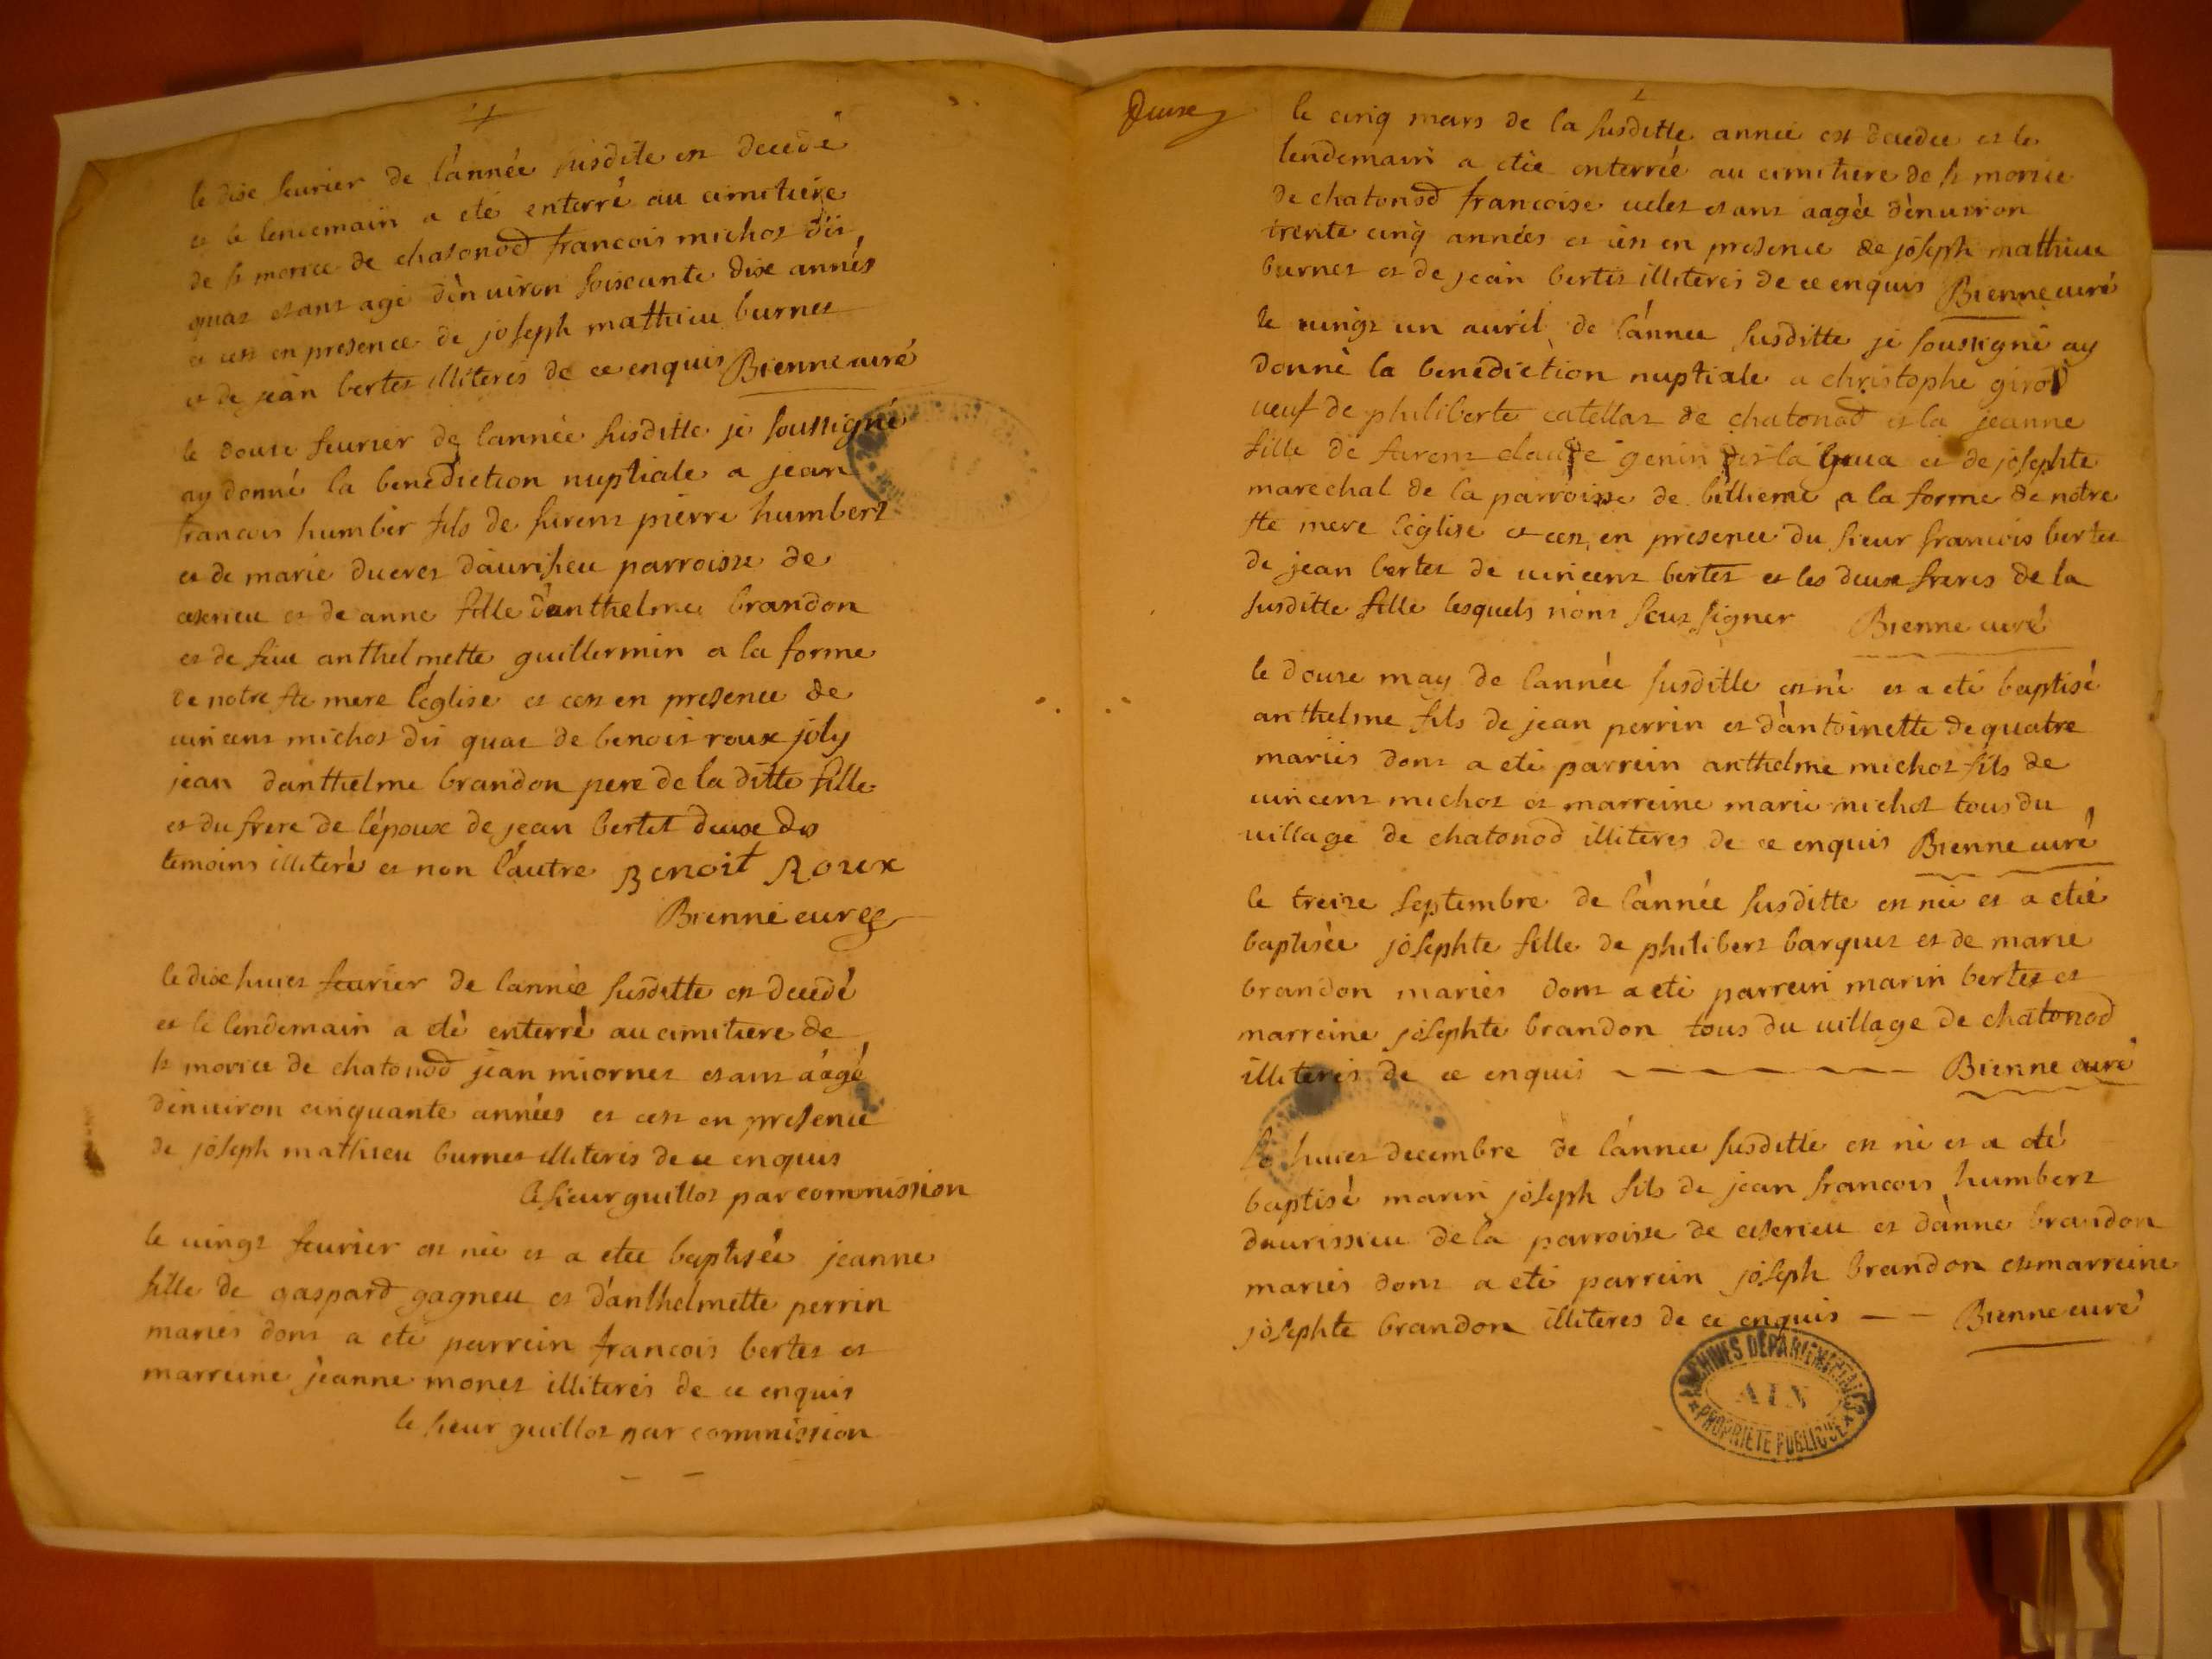 le dixe feurier de l'année susdite est decedé
et le lendemain a eté enterré au cimetiere
de st morice de chatonod francois michot dit
quat etant agé dènuiron soixante dixe annés
et cest en presence de joseph mathieu burnet
et de jean bertet illiterés de ce enquis Bienne curé
le douze feurier de lannée susditte je soussigné
ay donné la benediction nuptiale a jean
francois humber fils de furent pierre humbert
et de marie ducret daurisieu parroisse de
ceserieu et de anne fille d'anthelme brandon
et de feüe anthelmette guillermin a la forme
de notre ste mere l'église et cest en presence de
uincent michot dit quat de benoit roux joly
jean d'anthelme brandon pere de la ditte fille
et du frere de l'époux de jean bertet deuxe des
temoins illiteré et non l'autre Benoit Roux
Bienne curé
le dixe huiet feurier de lannée susditte est decedé
et le lendemain a eté enterré au cimetiere de
st morice de chatonod jean miornet etant áagé
dènuiron cinquante années et cest en presence
de joseph mathieu burnet illiterés de ce enquis
le sieur guillot par commission
le uingt feurier est neé et a etee baptisée jeanne
fille de gaspard gagneu et d'anthelmette perrin
mariés dont a eté parrein francois bertet et
marreine jeanne monet illiterés de ce enquis
le sieur guillot par commission
Deuxe
le cinq mars de la susditte année est decedée et le
lendemain a etée enterrée au cimitiere de st morice
de chatonod francoise uelet etant aagée dènuiron
trente cinq années et cest en presence de joseph mathieu
burnet et de jean bertet illiterés de ce enquis Bienne curé
le uingt un auril de l'annee susditte je soussigné ay
donné la benediction nuptiale a christophe girod
ueuf de philiberte catellat de chatonod et la jeanne
fille de furent claude genin dit la et de josephte
marechal de la parroisse de billieme a la forme de notre
ste mere l'église et cest en presence du sieur francois bertet
de jean bertet de uincent bertet et les deuxe freres de la
susditte fille lesquels n'ont sceut signer Bienne curé
le douze may de lannée susditte est né et a eté baptisé
anthelme fils de jean perrin et d'antoinette de quatre
mariés dont a eté parrein anthelme michot fils de
uincent michot et marreine marie michot tous du
uillage de chatonod illiteres de ce enquis Bienne curé
le treize septembre de l'année susditte est neé et a eteé
baptisée josephte fille de philibert barquet et de marie
brandon mariés dont a eté parrein marin bertet et
marreine josephte brandon tous du uillage de chatonod
illiterés de ce enquis Bienne curé
le huiet decembre de l'annee susditte est né et a eté
baptisé marin joseph fils de jean francois humbert
daurissieu de la parroisse de ceserieu et d'anne brandon
mariés dont a eté parrein joseph brandon et marreine
josephte brandon illiteres de ce enquis Bienne curé
ARCHIVES DEPARTEMENTALES
AIN
PROPRIETE PUBLIQUE